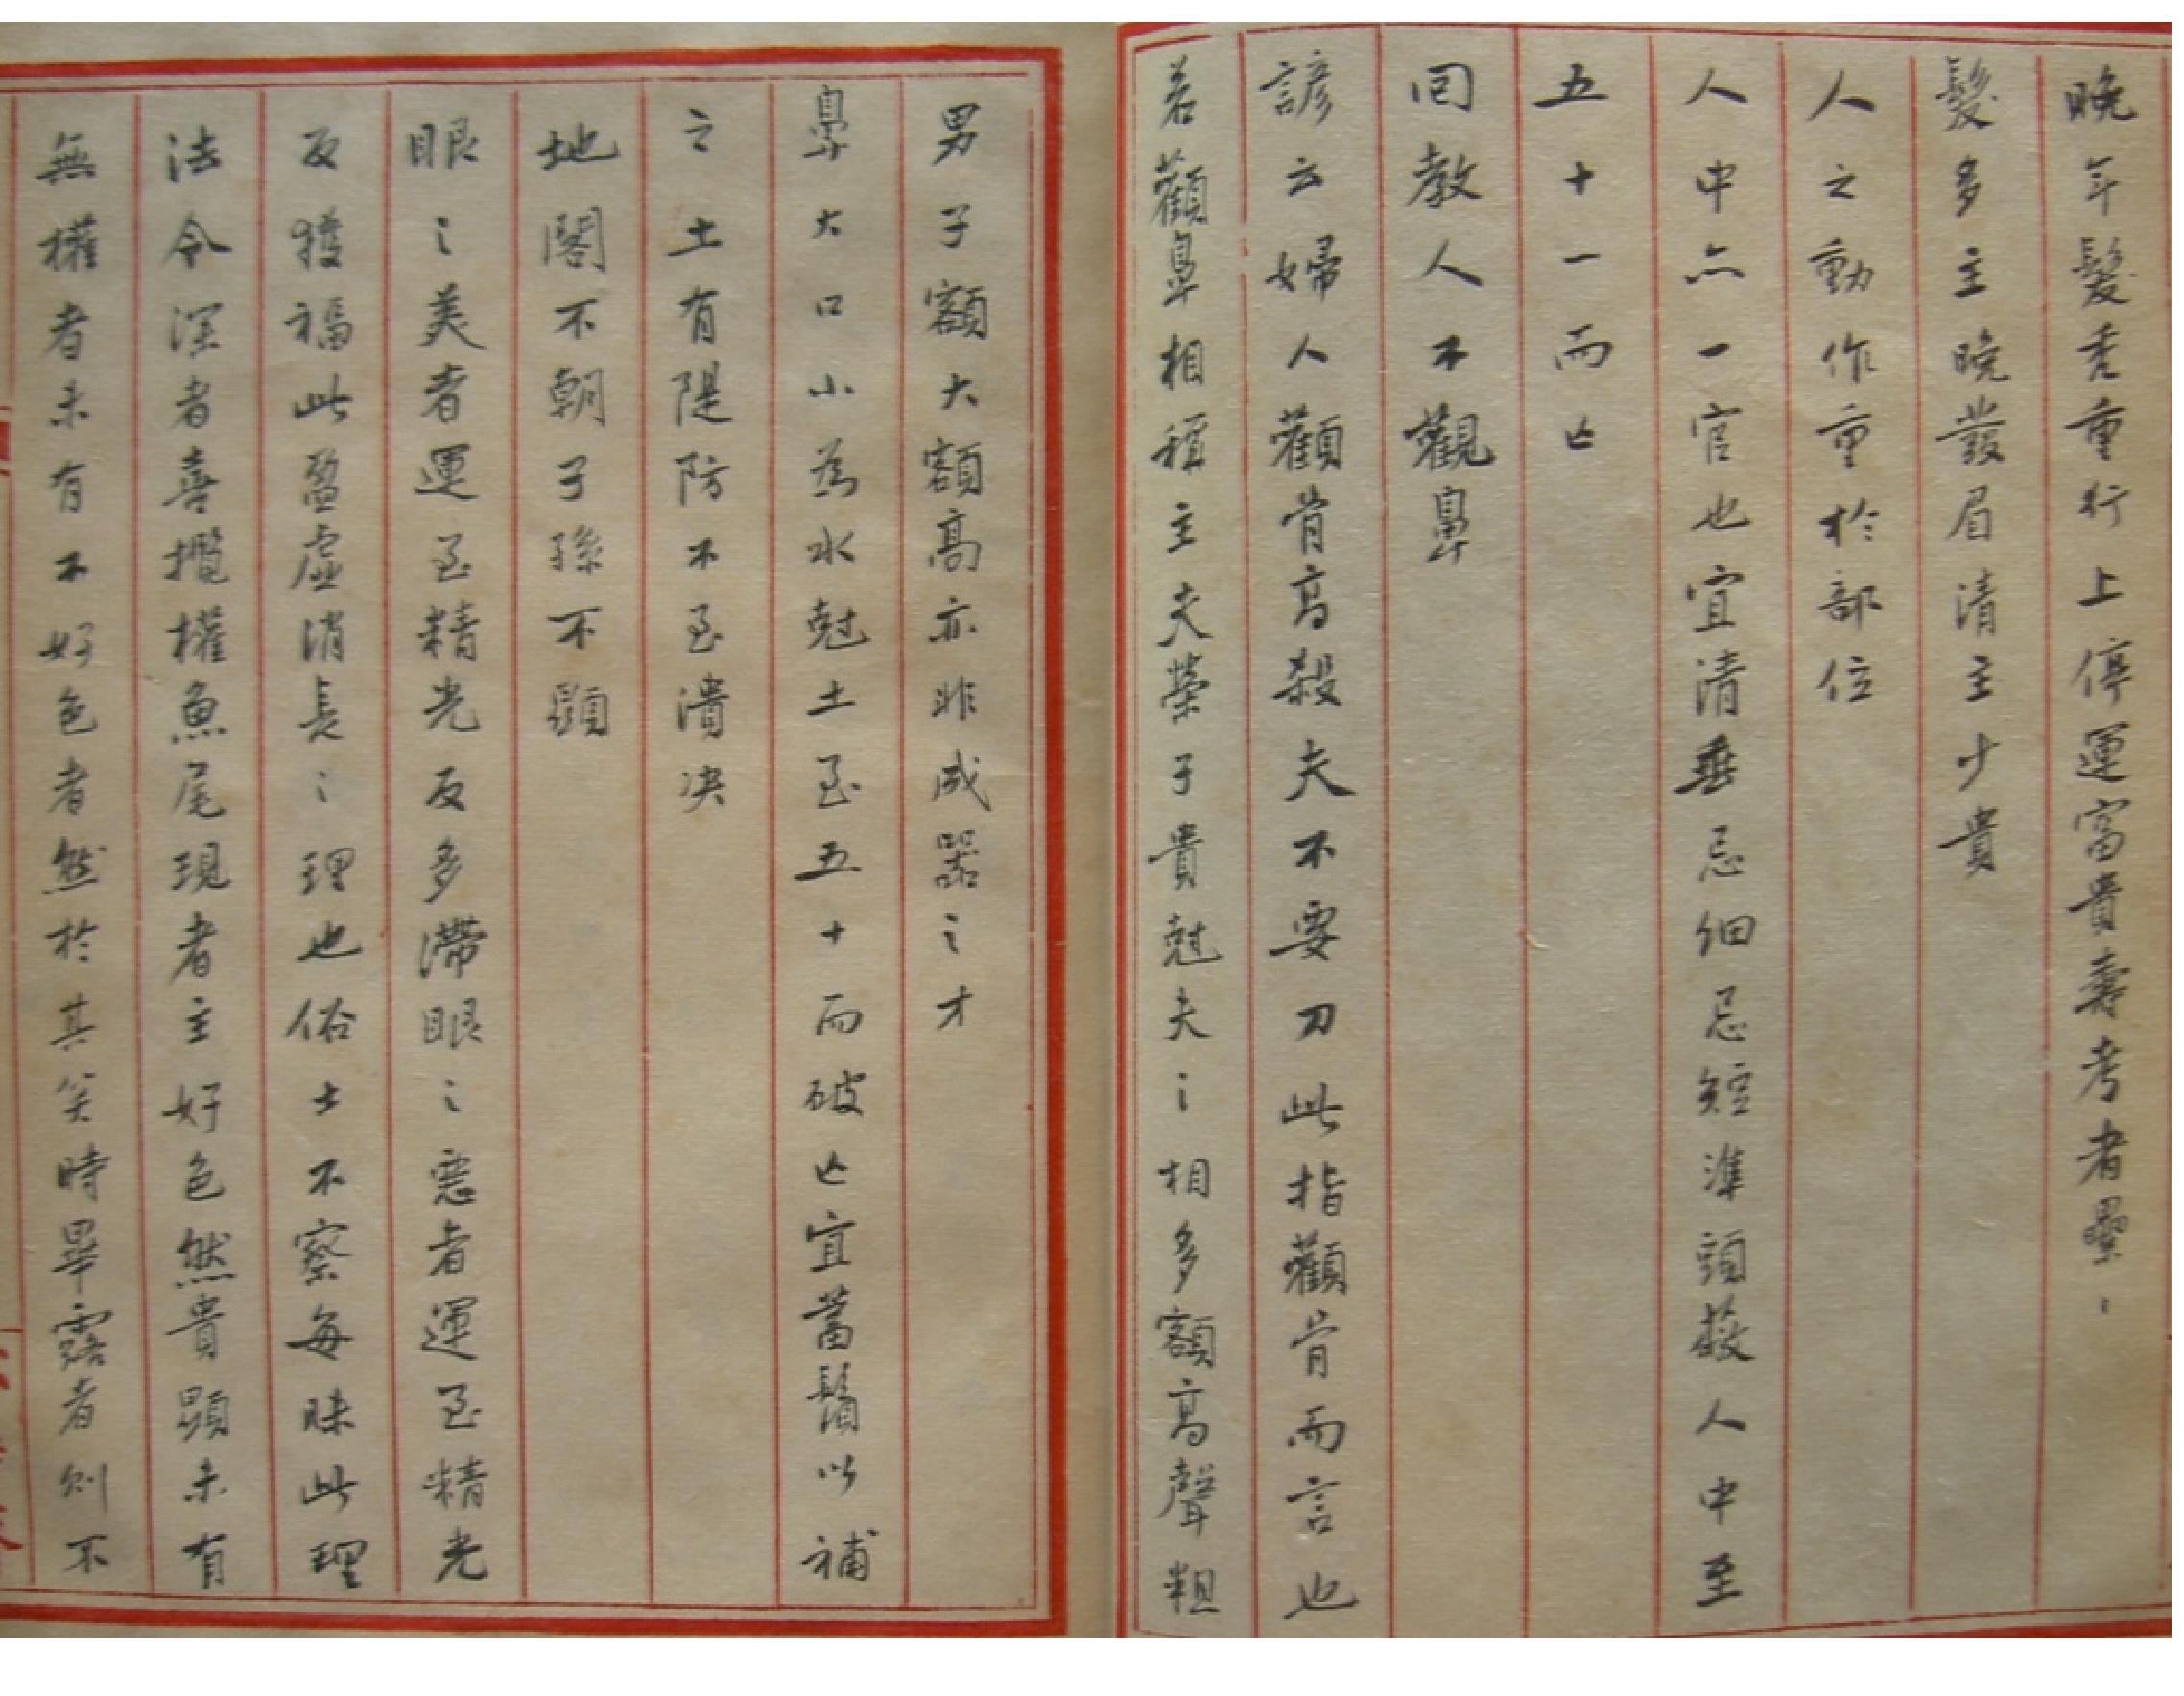 晚年髮秃重行上停運富貴壽考者纍〻
髮多主晚發眉清主少貴
人之動作重於部位
人中亦一官也宜清垂忌細忌短準頭蔽人中至
五十一而亡
回教人不觀鼻
諺云婦人顴骨高殺夫不要刀此指顴骨而言也
若顴鼻相稱主夫榮子貴尅夫之相多額高聲粗
男子額大額高亦非成器之才
鼻大口小為水尅土至五十而破亡宜蓄鬚以補
之土有隄防不至潰决
地閣不朝子孫不顯
眼之美者運至精光反多滯眼之惡者運至精光
反獲福此盈虛消長之理也俗士不察每昧此理
法令深者喜攬權魚尾現者主好色然貴顯未有
無權者未有不好色者然於其笑時畢露者則不